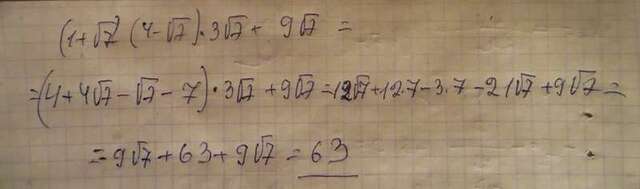 (1+√7)(4-√7)·3√7+ 9√7 =
=(4+4√7-√7-7)·3√7+9√7=12√7+12·7-3·7-21√7+9√7=
=9√7+63+9√7=63